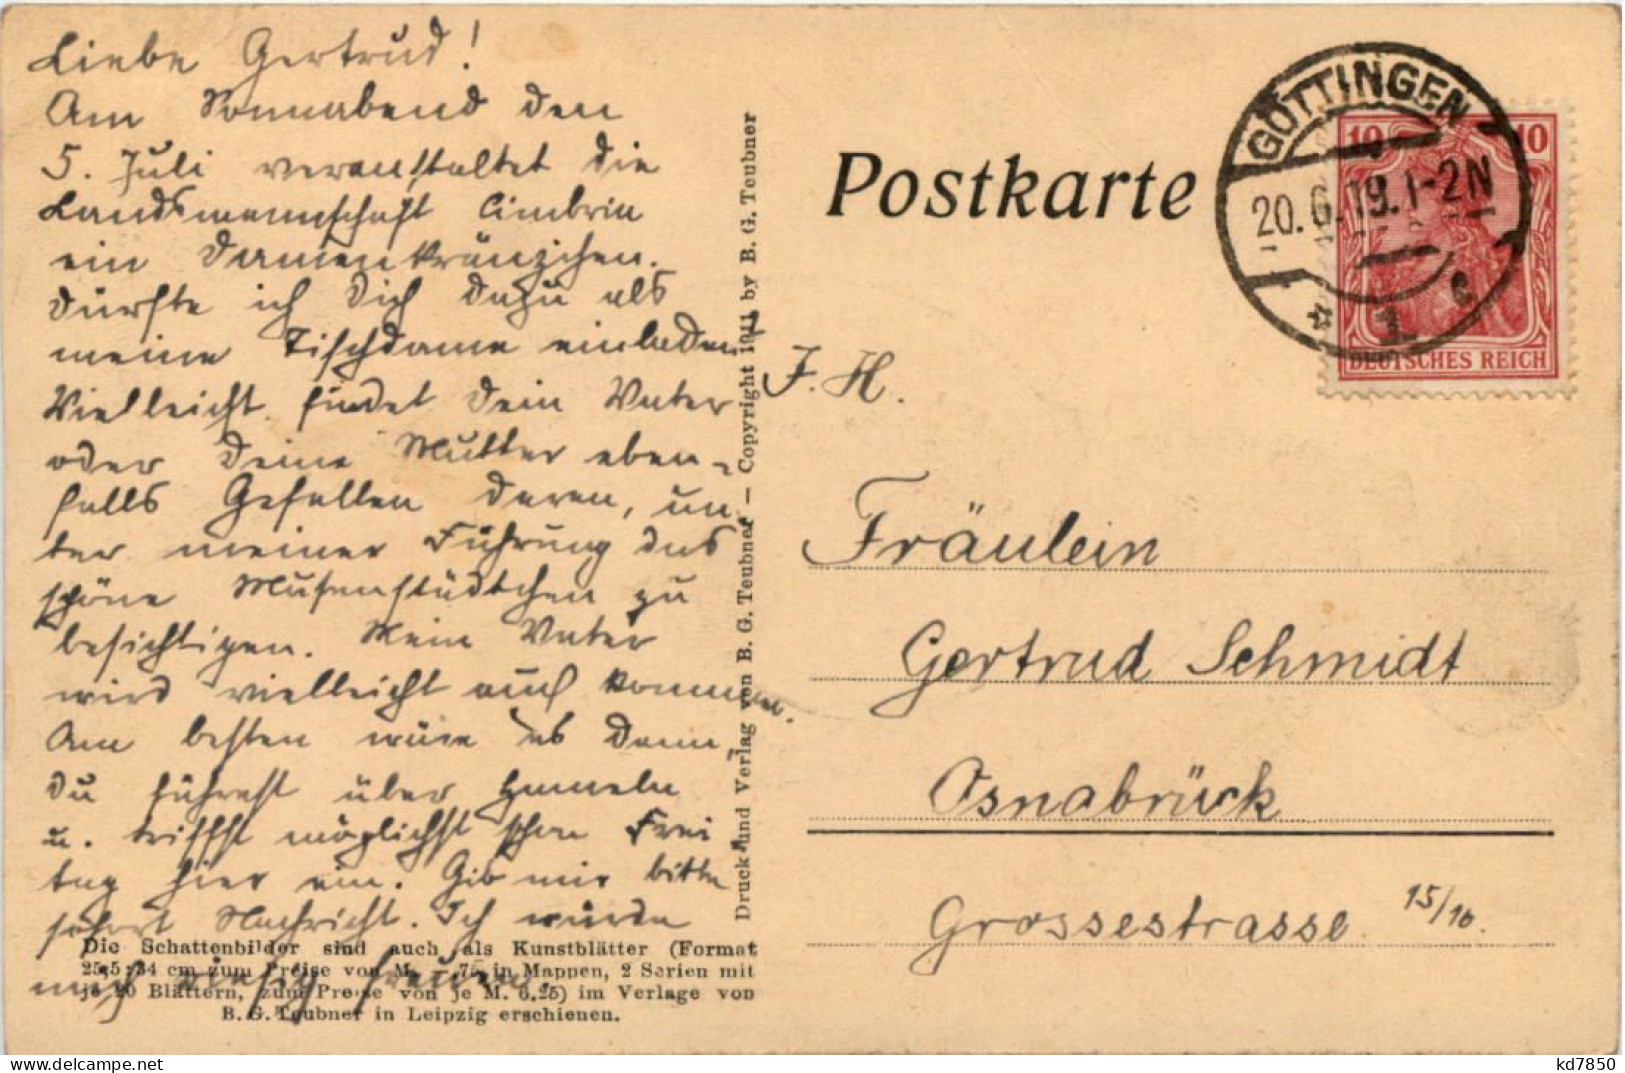 Liebe Gertrud!
Am Sonnabend den
5. Juli veranstaltet die
Landsmannschaft Cimbria
ein Damenkränzchen.
Dürfte ich Dich dazu als
meine Tischdame einladen?
Vielleicht findet Dein Vater
oder Deine Mutter eben-
falls Gefallen daran, un
ter meiner Führung das
schöne Musenstädtchen zu
besichtigen. Mein Vater
wird vielleicht auch kommen.
Am besten wäre es dann,
Du führest über Hameln
u. triffst möglichst schon Frei
tag hier ein. Gib mir bitte
sofort Nachricht. Ich würde
mich riesig freuen.
J. H.
Die Schattenbilder sind auch als Kunstblätter (Format
25,5:34 cm zum Preise von M. —.75 in Mappen, 2 Serien mit
je 10 Blättern, zum Preise von je M. 6.25) im Verlage von
B. G. Teubner in Leipzig erschienen.
Druck und Verlag von B. G. Teubner — Copyright 1911 by B. G. Teubner
Postkarte
GÖTTINGEN
20.6.19.1-2N
* 1. c
10 10
DEUTSCHES REICH
Fräulein
Gertrud Schmidt
Osnabrück
Grossestrasse 15/16.
kd7850